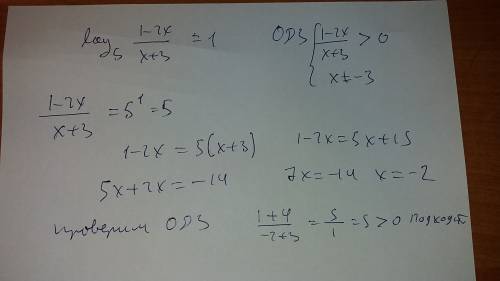 log₅ (1-2x)/(x+3) = 1 ОДЗ { (1-2x)/(x+3) > 0
x ≠ -3
(1-2x)/(x+3) = 5¹ = 5
1-2x = 5(x+3) 1-2x = 5x+15
5x+2x = -14 7x = -14 x = -2
проверим ОДЗ (1+4)/(-2+3) = 5/1 = 5 > 0 подходит